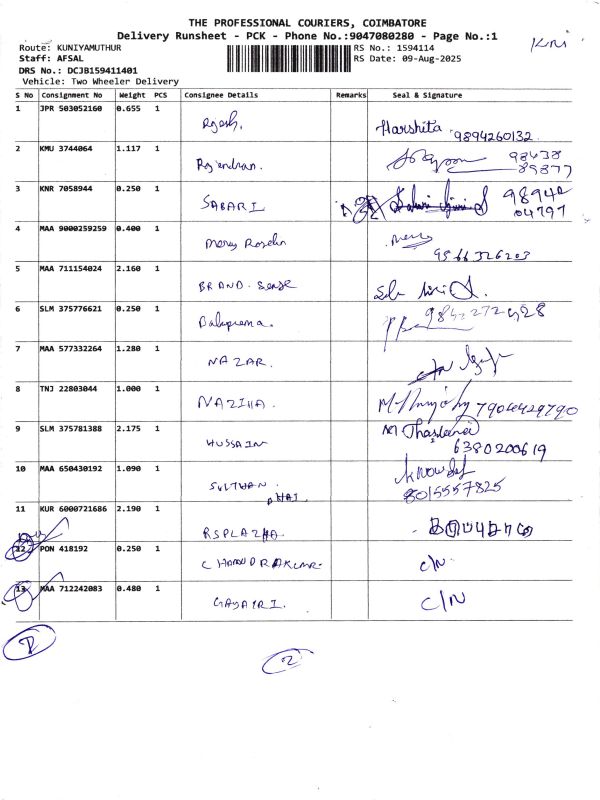 THE PROFESSIONAL COURIERS, COIMBATORE
Delivery Runsheet - PCK - Phone No.:9047080280 - Page No.:1
Route: KUNIYAMUTHUR RS No.: 1594114
Staff: AFSAL RS Date: 09-Aug-2025
DRS No.: DCJB159411401
Vehicle: Two Wheeler Delivery
S No Consignment No Weight PCS Consignee Details Remarks Seal & Signature
1 JPR 503052160 0.655 1
Rajesh. Harshita 9894260132
2 KMU 3744064 1.117 1
Rajendran. 98438
89877
3 KNR 7058944 0.250 1
SABARI 98942
04797
4 MAA 9000259259 0.400 1
Mercy Roselin Mercy
9566326203
5 MAA 711154024 2.160 1
BRAND. Sense
6 SLM 375776621 0.250 1
Balaprema.
7 MAA 577332264 1.280 1
NAZAR.
8 TNJ 22803044 1.000 1
NAZIHA. 7904429790
9 SLM 375781388 2.175 1
HUSSAIN M Thasleena
6380200619
10 MAA 650430192 1.090 1
SULTHAN 8015557825
BHAI
11 KUR 6000721686 2.190 1
RSPLAZHA
12 PON 418192 0.250 1
CHANDRAKUMAR. C/N.
13 MAA 712242083 0.480 1
GAYATRI. C/N
2